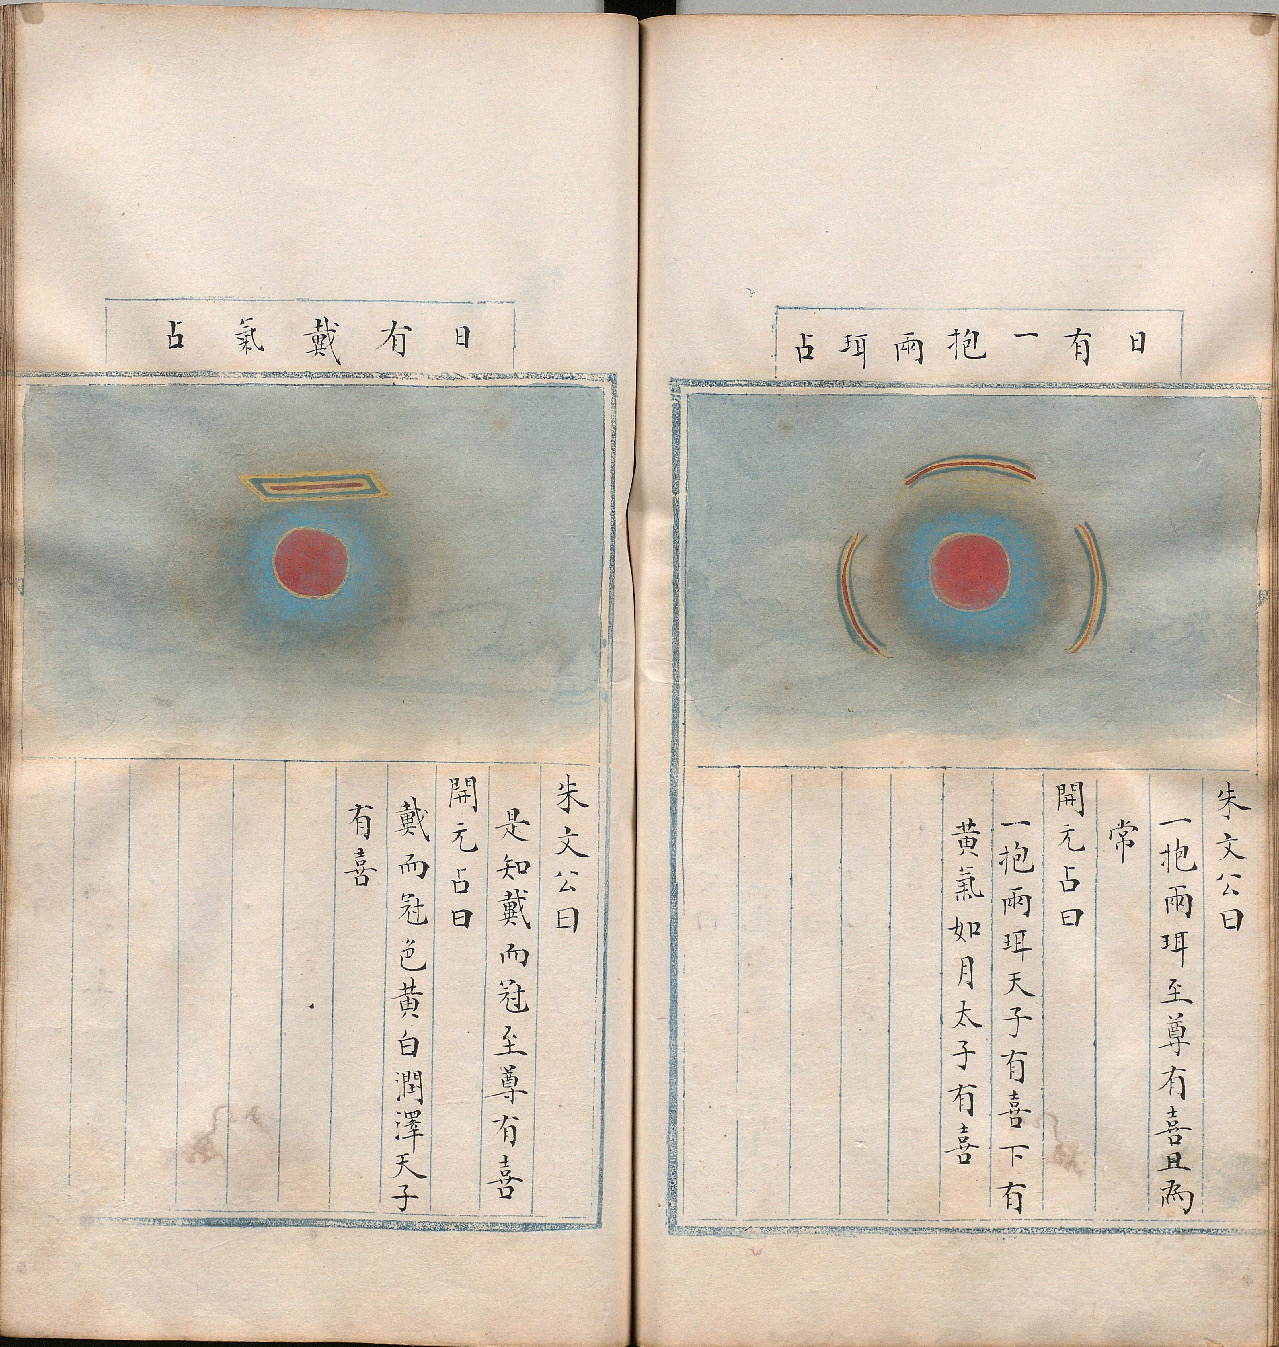 日有一抱兩珥占
朱文公曰
一抱兩珥至尊有喜且為
常
開元占曰
一抱兩珥天子有喜下有
黃氣如月太子有喜
日有戴氣占
朱文公曰
是知戴而冠至尊有喜
開元占曰
戴而冠色黃白潤澤天子
有喜